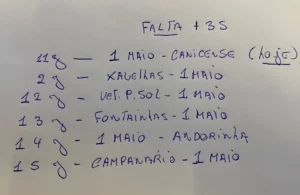 FALTA + 3S
11 J — 1 MAIO - CANICENSE (hoje)
2 J — XAVELHAS - 1 MAIO
12 J — VET. P. SOL - 1 MAIO
13 J — FONTAINHAS - 1 MAIO
14 J — 1 MAIO - ANDORINHA
15 J - CAMPANARIO - 1 MAIO